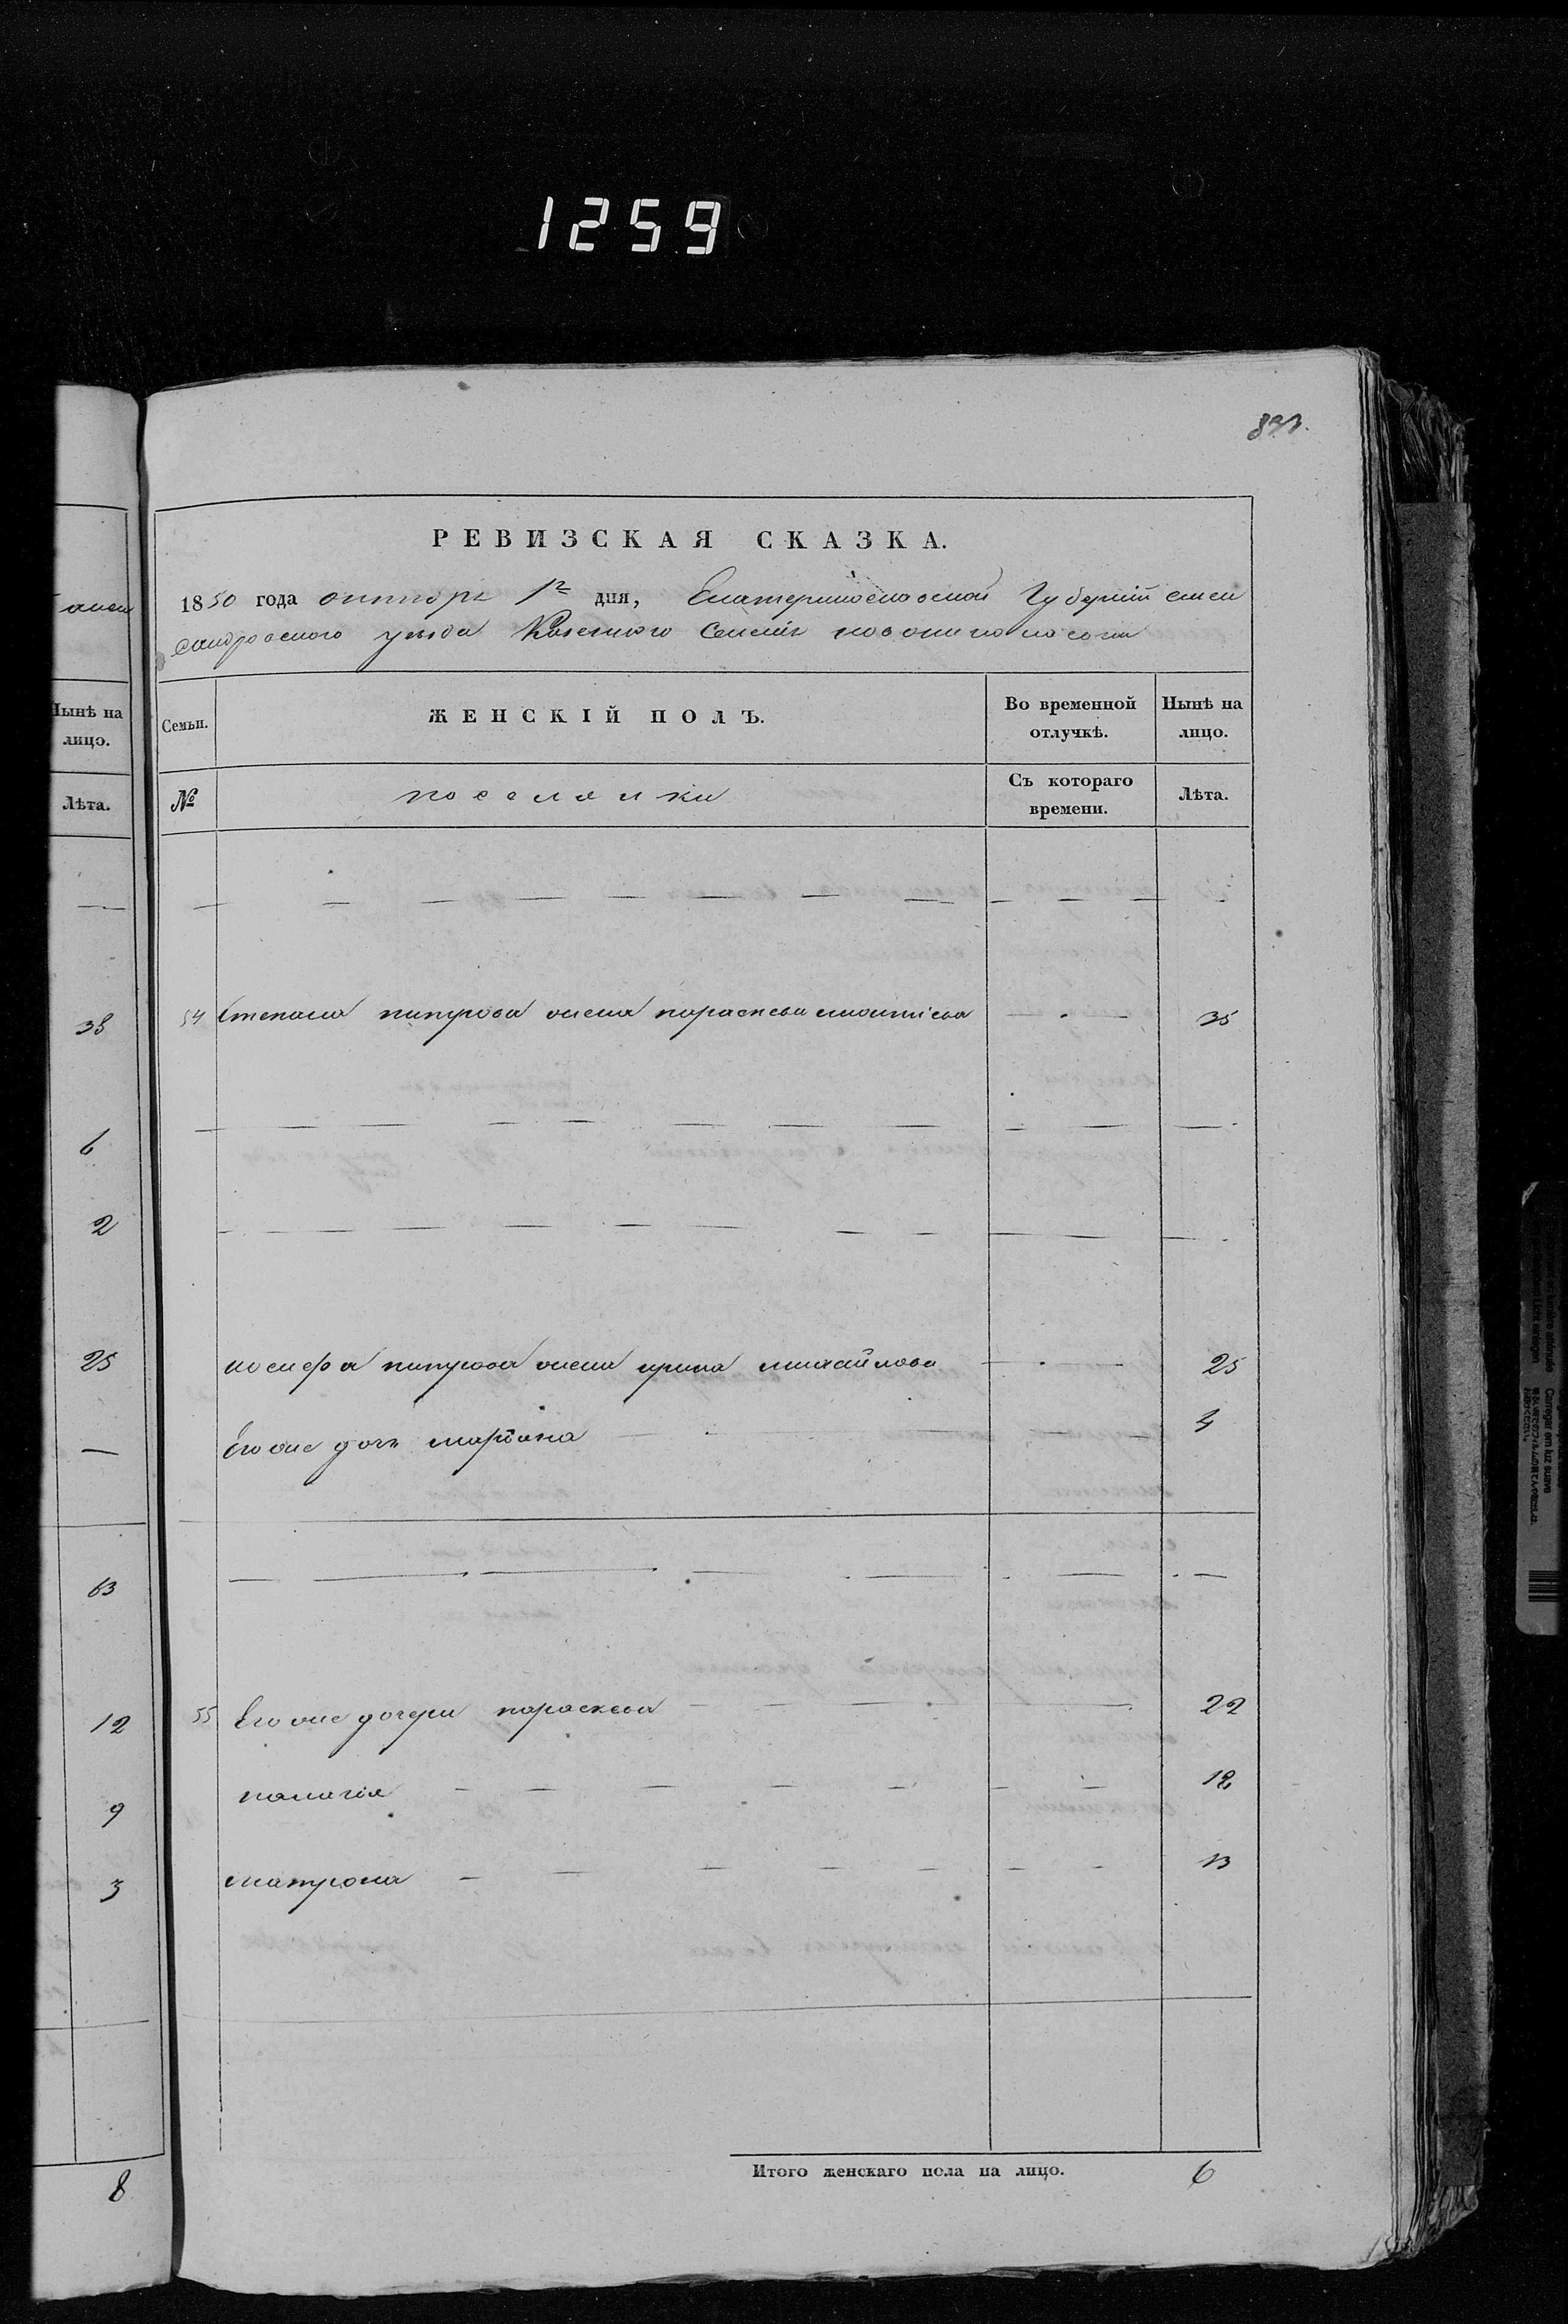 1259
РЕВИЗСКАЯ СКАЗКА.
1850 года октября 1го дня, Екатеринославской Губернии Алек
сандровского уезда Казенного Селения
Нынѣ на
лицо.
Лѣта.
Семьи.
ЖЕНСКІЙ ПОЛЪ.
Во временной
отлучкѣ.
Нынѣ на
лицо.
№
поселянки
Съ котораго
времени.
Лѣта.
54 Степана жена параскева 35
6
2
жена ирина михайлова 25
25
Его же дочь мариана 4
63
55 Его же дочери параскева 22
12
палагія
9
матрона 13
3
Итого женскаго пола на лицо. 6
8